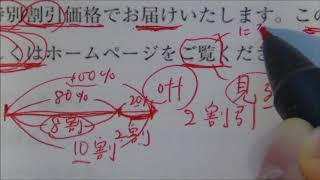 特別割引価格でお届けいたします。この
くはホームページをご覧くださ
に
100%
80%
20%
off
見る
8割
2割
2割引
10割